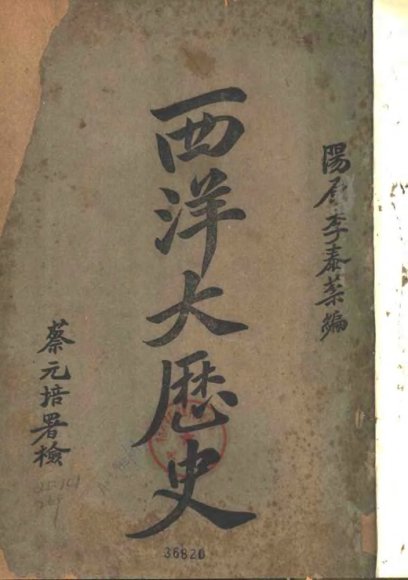 陽原李泰棻編
西洋大歷史
蔡元培署檢
36820